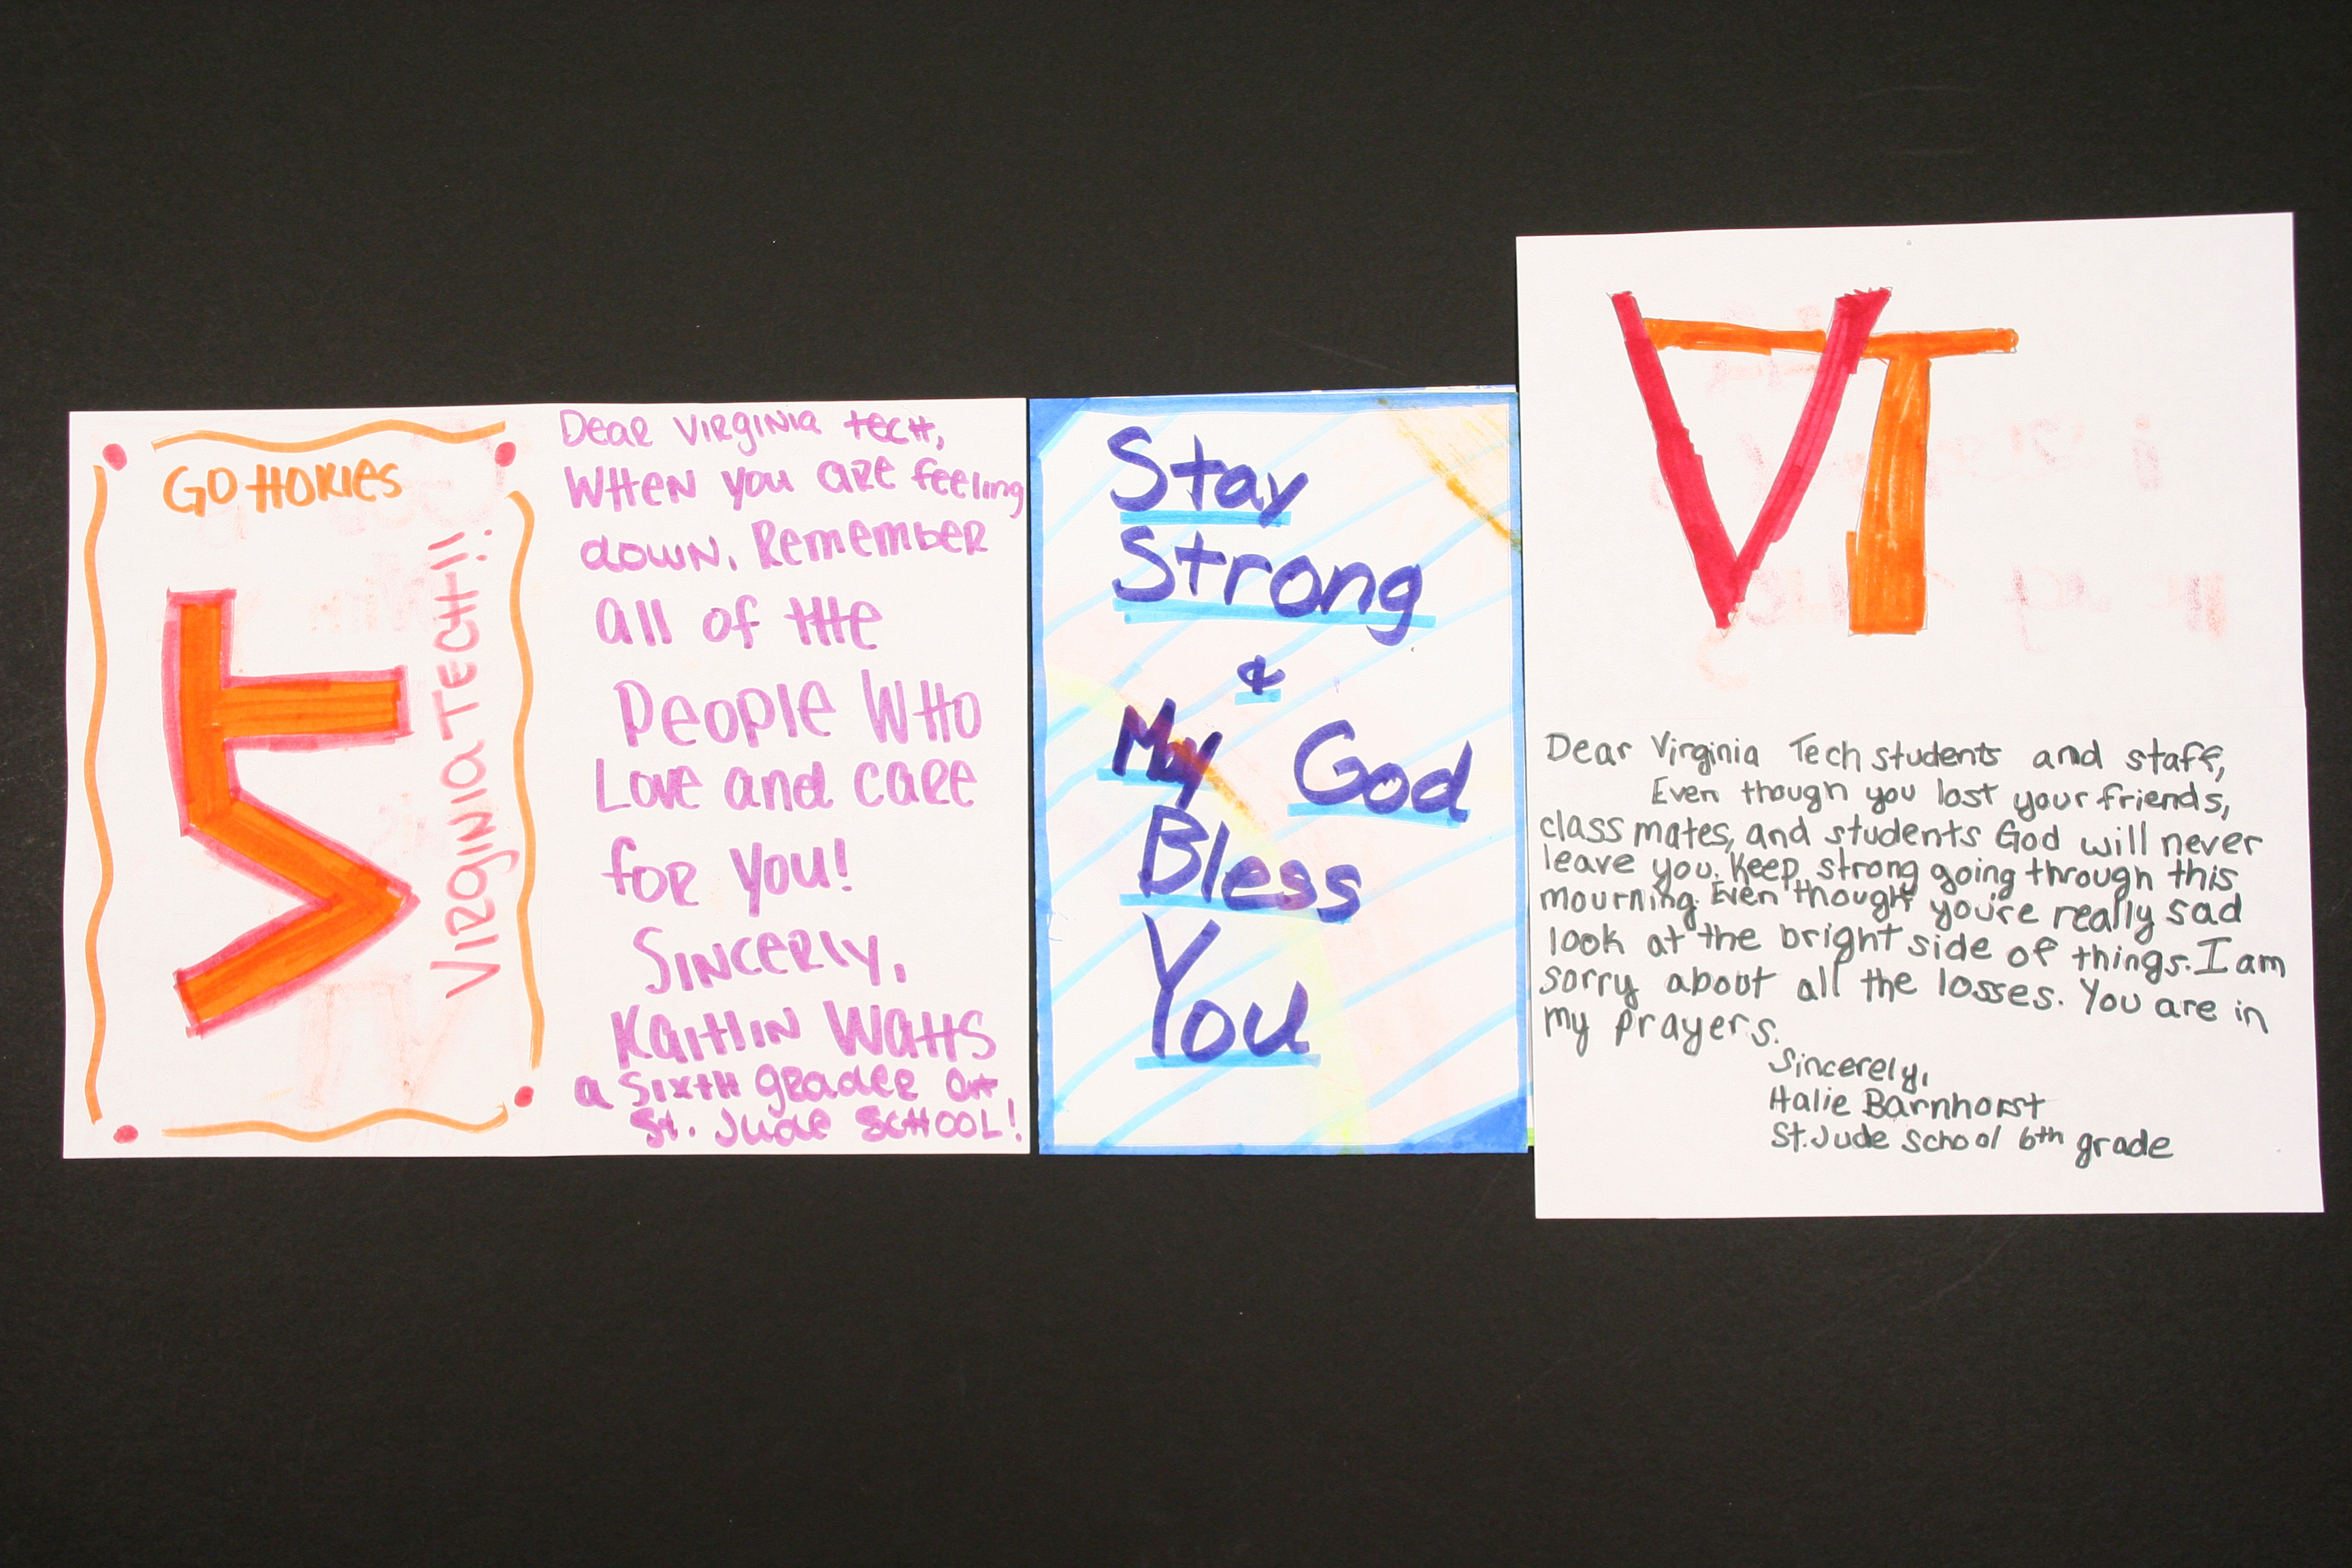 GO HOKIES
VT
VIRGINIA TECH!!
Dear Virginia tech,
When you are feeling
down. Remember
all of the
People Who
Love and care
for you!
Sincerly,
Kaitlin Watts
a sixth grader at
St. Jude School!
Stay
Strong
&
May God
Bless
You
VT
Dear Virginia Tech students and staff,
Even though you lost your friends,
class mates, and students God will never
leave you. Keep strong going through this
mourning. Even though you're really sad
look at the bright side of things. I am
sorry about all the losses. You are in
my prayers.
Sincerely,
Halie Barnhorst
St. Jude School 6th grade